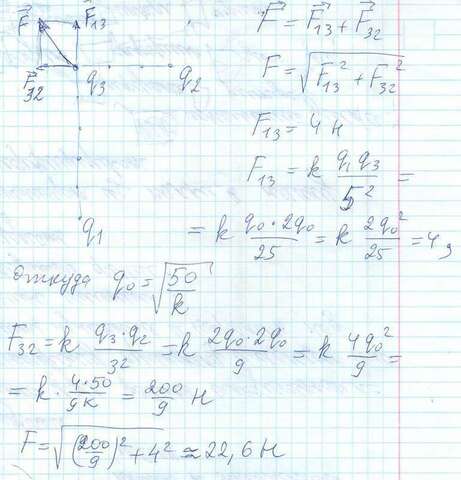 F⃗ F⃗13
F⃗32 q3 q2
q1
F⃗ = F⃗13 + F⃗32
F = √(F13² + F32²)
F13 = 4 Н
F13 = k q1 q3 / 5² =
= k q0 · 2q0 / 25 = k 2q0² / 25 = 4,
откуда q0 = √(50 / k)
F32 = k q3 · q2 / 3² = k 2q0 · 2q0 / 9 = k 4q0² / 9 =
= k · 4·50 / 9k = 200 / 9 Н
F = √((200/9)² + 4²) ≈ 22,6 Н